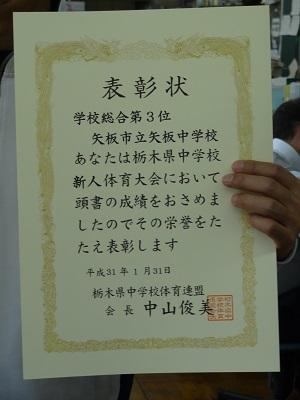 表彰状
学校総合第３位
矢板市立矢板中学校
あなたは栃木県中学校
新人体育大会において
頭書の成績をおさめま
したのでその栄誉をた
たえ表彰します
平成31年１月31日
栃木県中学校体育連盟
会長 中山俊美